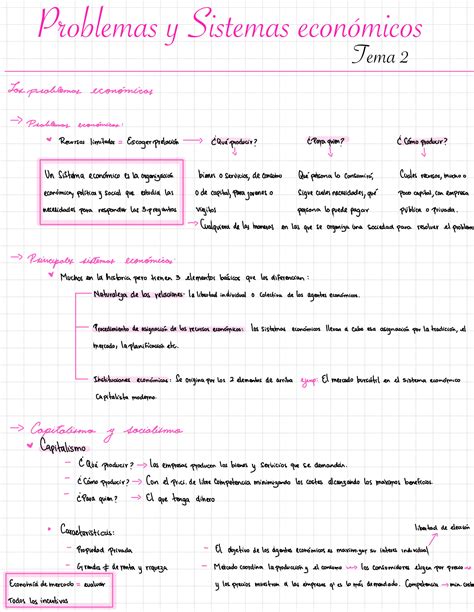 Problemas y Sistemas económicos
Tema 2
Los problemas económicos
→ Problemas económicos:
Recursos limitados = Escoger → ¿Qué producir? → ¿Para quien? → ¿Cómo producir?
Un Sistema económico es la organización
económica, política y social que estudia las
necesidades para responder las 3 preguntas
bienes o servicios, de consumo
o de capital, para jovenes o
viejitos
Qué persona lo consumirá,
Sigue cuales necesidades, qué
persona lo puede pagar
Cuales recursos, mucho o
poco capital, con empresa
pública o privada.
→ Cualquiera de las maneras en las que se organiza una sociedad para resolver el problema
→ Principales sistemas económicos:
Muchos en la historia pero tienen 3 elementos básicos que los diferencian:
Naturaleza de las relaciones: la libertad individual o colectiva de los agentes económicos.
Procedimiento de asignación de los recursos económicos: los sistemas económicos llevan a cabo esa asignación por la tradición, el
mercado, la planificación etc.
Instituciones económicas: Se origina por los 2 elementos de arriba ejemp: El mercado bursátil en el sistema económico
Capitalista moderno.
→ Capitalismo y socialismo
Capitalismo
- ¿Qué producir? → Las empresas producen los bienes y servicios que se demandan.
- ¿Cómo producir? → Con el de libre Competencia minimizando los costes alcanzando los máximos beneficios.
- ¿Para quien? → El que tenga dinero
libertad de elección
Características:
- Propiedad privada
- Grandes ≠ de renta y riqueza
- El objetivo de los agentes económicos es maximizar su interes individual
- Mercado coordina la producción y el consumo → los consumidores eligen por precio
y los precios muestran a las empresas q' es lo más demandado. Competencia →
Economía de mercado = evaluar
todos los incentivos